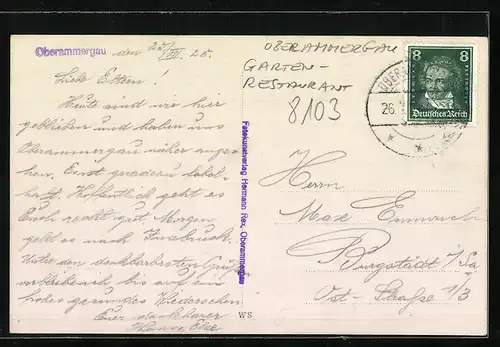 Oberammergau den 25/VII. 28.
Liebe Eltern!
Heute sind wir hier
geblieben und haben uns
Oberammergau näher angese-
hen. Einst geradezu fabel-
haft. Hoffentlich geht es
Euch recht gut. Morgen
geht es nach Innsbruck.
Unter den denkbarbesten Grüßen
verbleibe ich bis auf ein
frohes gesundes Wiedersehen
Euer dankbarer
Hanne, Else
OBERAMMERGAU
GARTEN-
RESTAURANT
8103
Fotokunstverlag Hermann Rex, Oberammergau
WS
8 8
Deutsches Reich
26.
Herrn
Max Emmrich
Burgstädt i/Sa
Ost-Straße 1/3